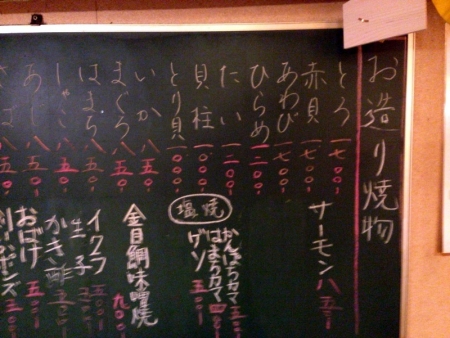 お造り焼物
とろ 一七〇〇
赤貝 一〇〇〇
あわび 一七〇〇
ひらめ 一二〇〇
たい 一二〇〇
貝柱 一〇〇〇
とり貝 一〇〇〇
いか 八五〇
まぐろ 八五〇
はまち 八五〇
しゃこ 八五〇
あじ 八五〇
さば 八五〇
サーモン 八五〇
塩焼
かんぱちカマ 五〇〇
はまちカマ 四〇〇
ゲソ 五〇〇
金目鯛味噌焼 九〇〇
イクラ
生子 五〇〇
かき酢 五〇〇
おばけ 五〇〇